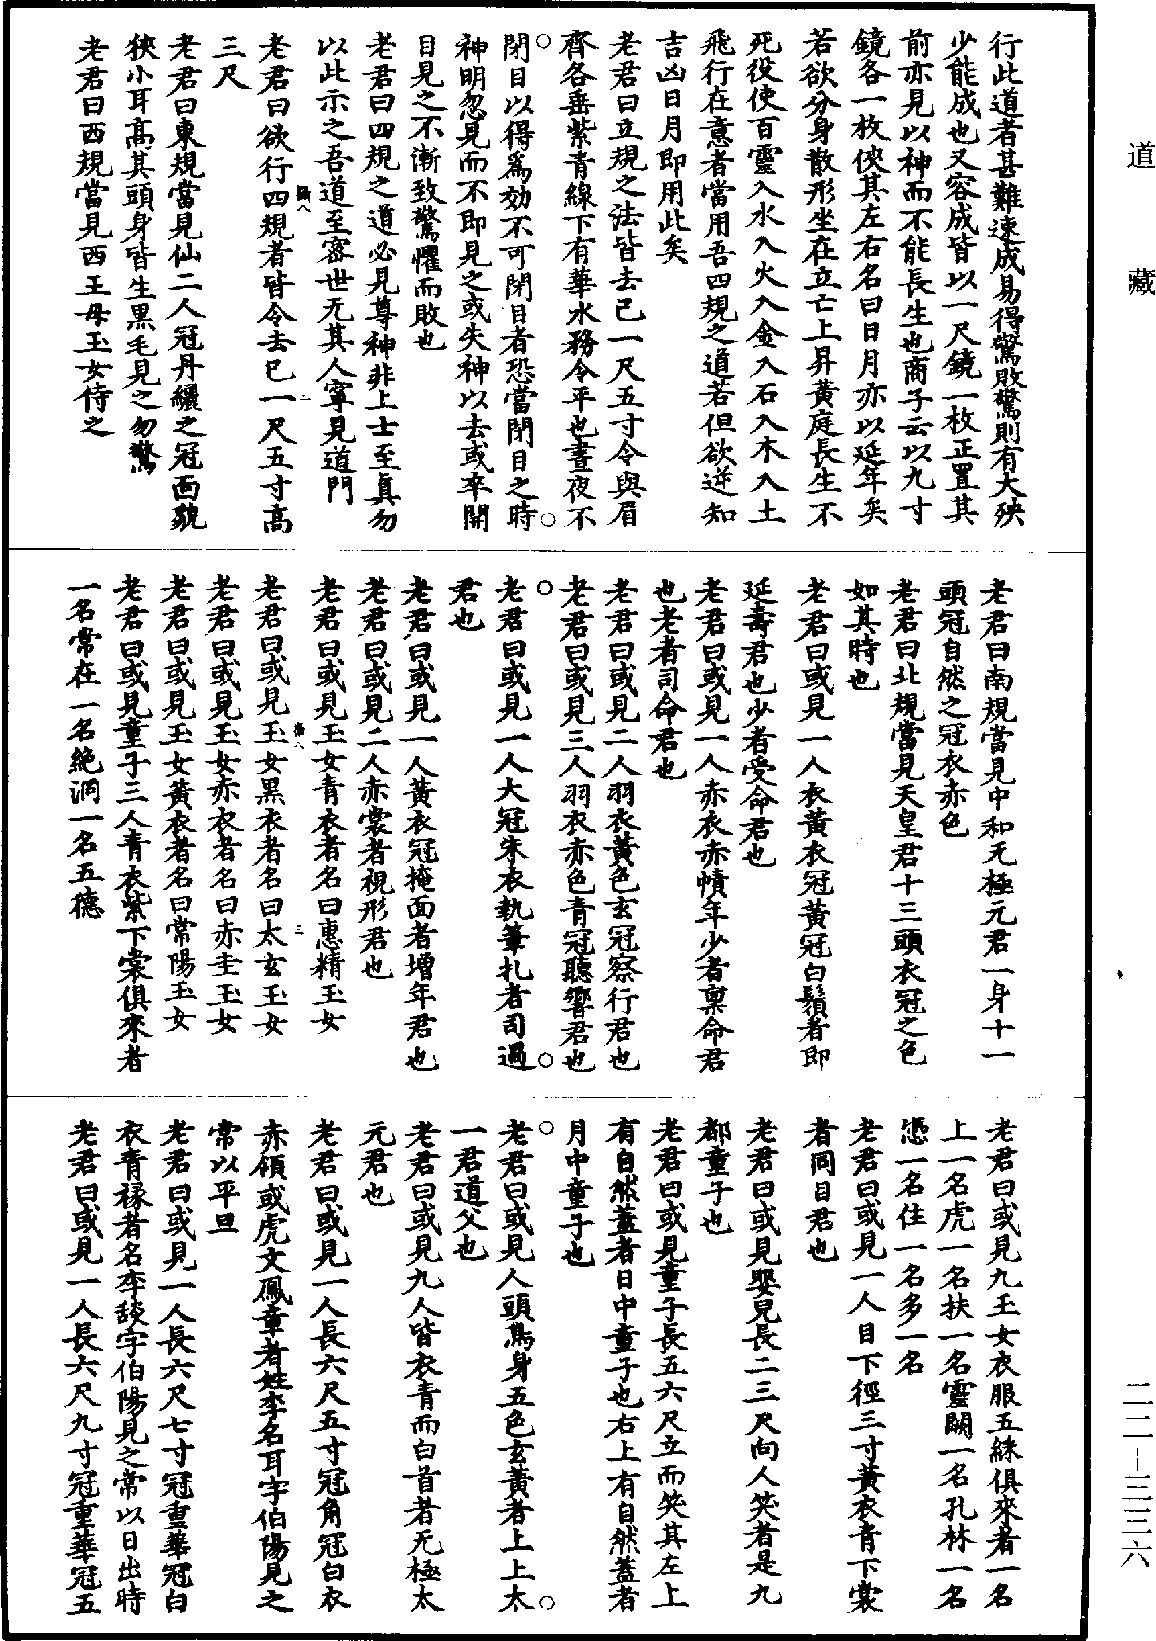 道藏
行此道者甚難速成易得驚敗驚則有大殃
少能成也又容成皆以一尺鏡一枚正置其
前亦見以神而不能長生也商子云以九寸
鏡各一枚俠其左右名曰日月亦以延年矣
若欲分身散形坐在立亡上昇黃庭長生不
死役使百靈入水入火入金入石入木入土
飛行在意者當用吾四規之道若但欲逆知
吉凶日月即用此矣
老君曰立規之法皆去己一尺五寸令與眉
齊各垂紫青線下有華水務令平也晝夜不
閉目以得爲効不可閉目者恐當閉目之時
神明忽見而不即見之或失神以去或卒開
目見之不漸致驚懼而敗也
老君曰四規之道必見尊神非上士至真勿
以此示之吾道至密世无其人寧見道門
二
老君曰欲行四規者皆令去己一尺五寸高
三尺
老君曰東規當見仙二人冠丹纓之冠面貌
狹小耳高其頭身皆生黑毛見之勿驚
老君曰西規當見西王母玉女侍之
老君曰南規當見中和无極元君一身十一
頭冠自然之冠衣赤色
老君曰北規當見天皇君十三頭衣冠之色
如其時也
老君曰或見一人衣黃衣冠黃冠白鬚者即
延壽君也少者受命君也
老君曰或見一人赤衣赤幘年少者稟命君
也老者司命君也
老君曰或見二人羽衣黃色玄冠察行君也
老君曰或見三人羽衣赤色青冠聽響君也
老君曰或見一人大冠朱衣執筆札者司過
君也
老君曰或見一人黃衣冠掩面者增年君也
老君曰或見二人赤裳者視形君也
老君曰或見玉女青衣者名曰惠精玉女
三
老君曰或見玉女黑衣者名曰太玄玉女
老君曰或見玉女赤衣者名曰赤圭玉女
老君曰或見玉女黃衣者名曰常陽玉女
老君曰或見童子三人青衣紫下裳俱來者
一名常在一名絶洞一名五德
老君曰或見九玉女衣服五綵俱來者一名
上一名虎一名扶一名靈闕一名孔林一名
憑一名住一名多一名
老君曰或見一人目下徑三寸黃衣青下裳
者同目君也
老君曰或見嬰兒長二三尺向人笑者是九
都童子也
老君曰或見童子長五六尺立而笑其左上
有自然蓋者日中童子也右上有自然蓋者
月中童子也
老君曰或見人頭鳥身五色玄黃者上上太
一君道父也
老君曰或見九人皆衣青而白首者无極太
元君也
老君曰或見一人長六尺五寸冠角冠白衣
赤領或虎文鳳章者姓李名耳字伯陽見之
常以平旦
老君曰或見一人長六尺七寸冠重華冠白
衣青褖者名李錟字伯陽見之常以日出時
老君曰或見一人長六尺九寸冠重華冠五
二二—三三六